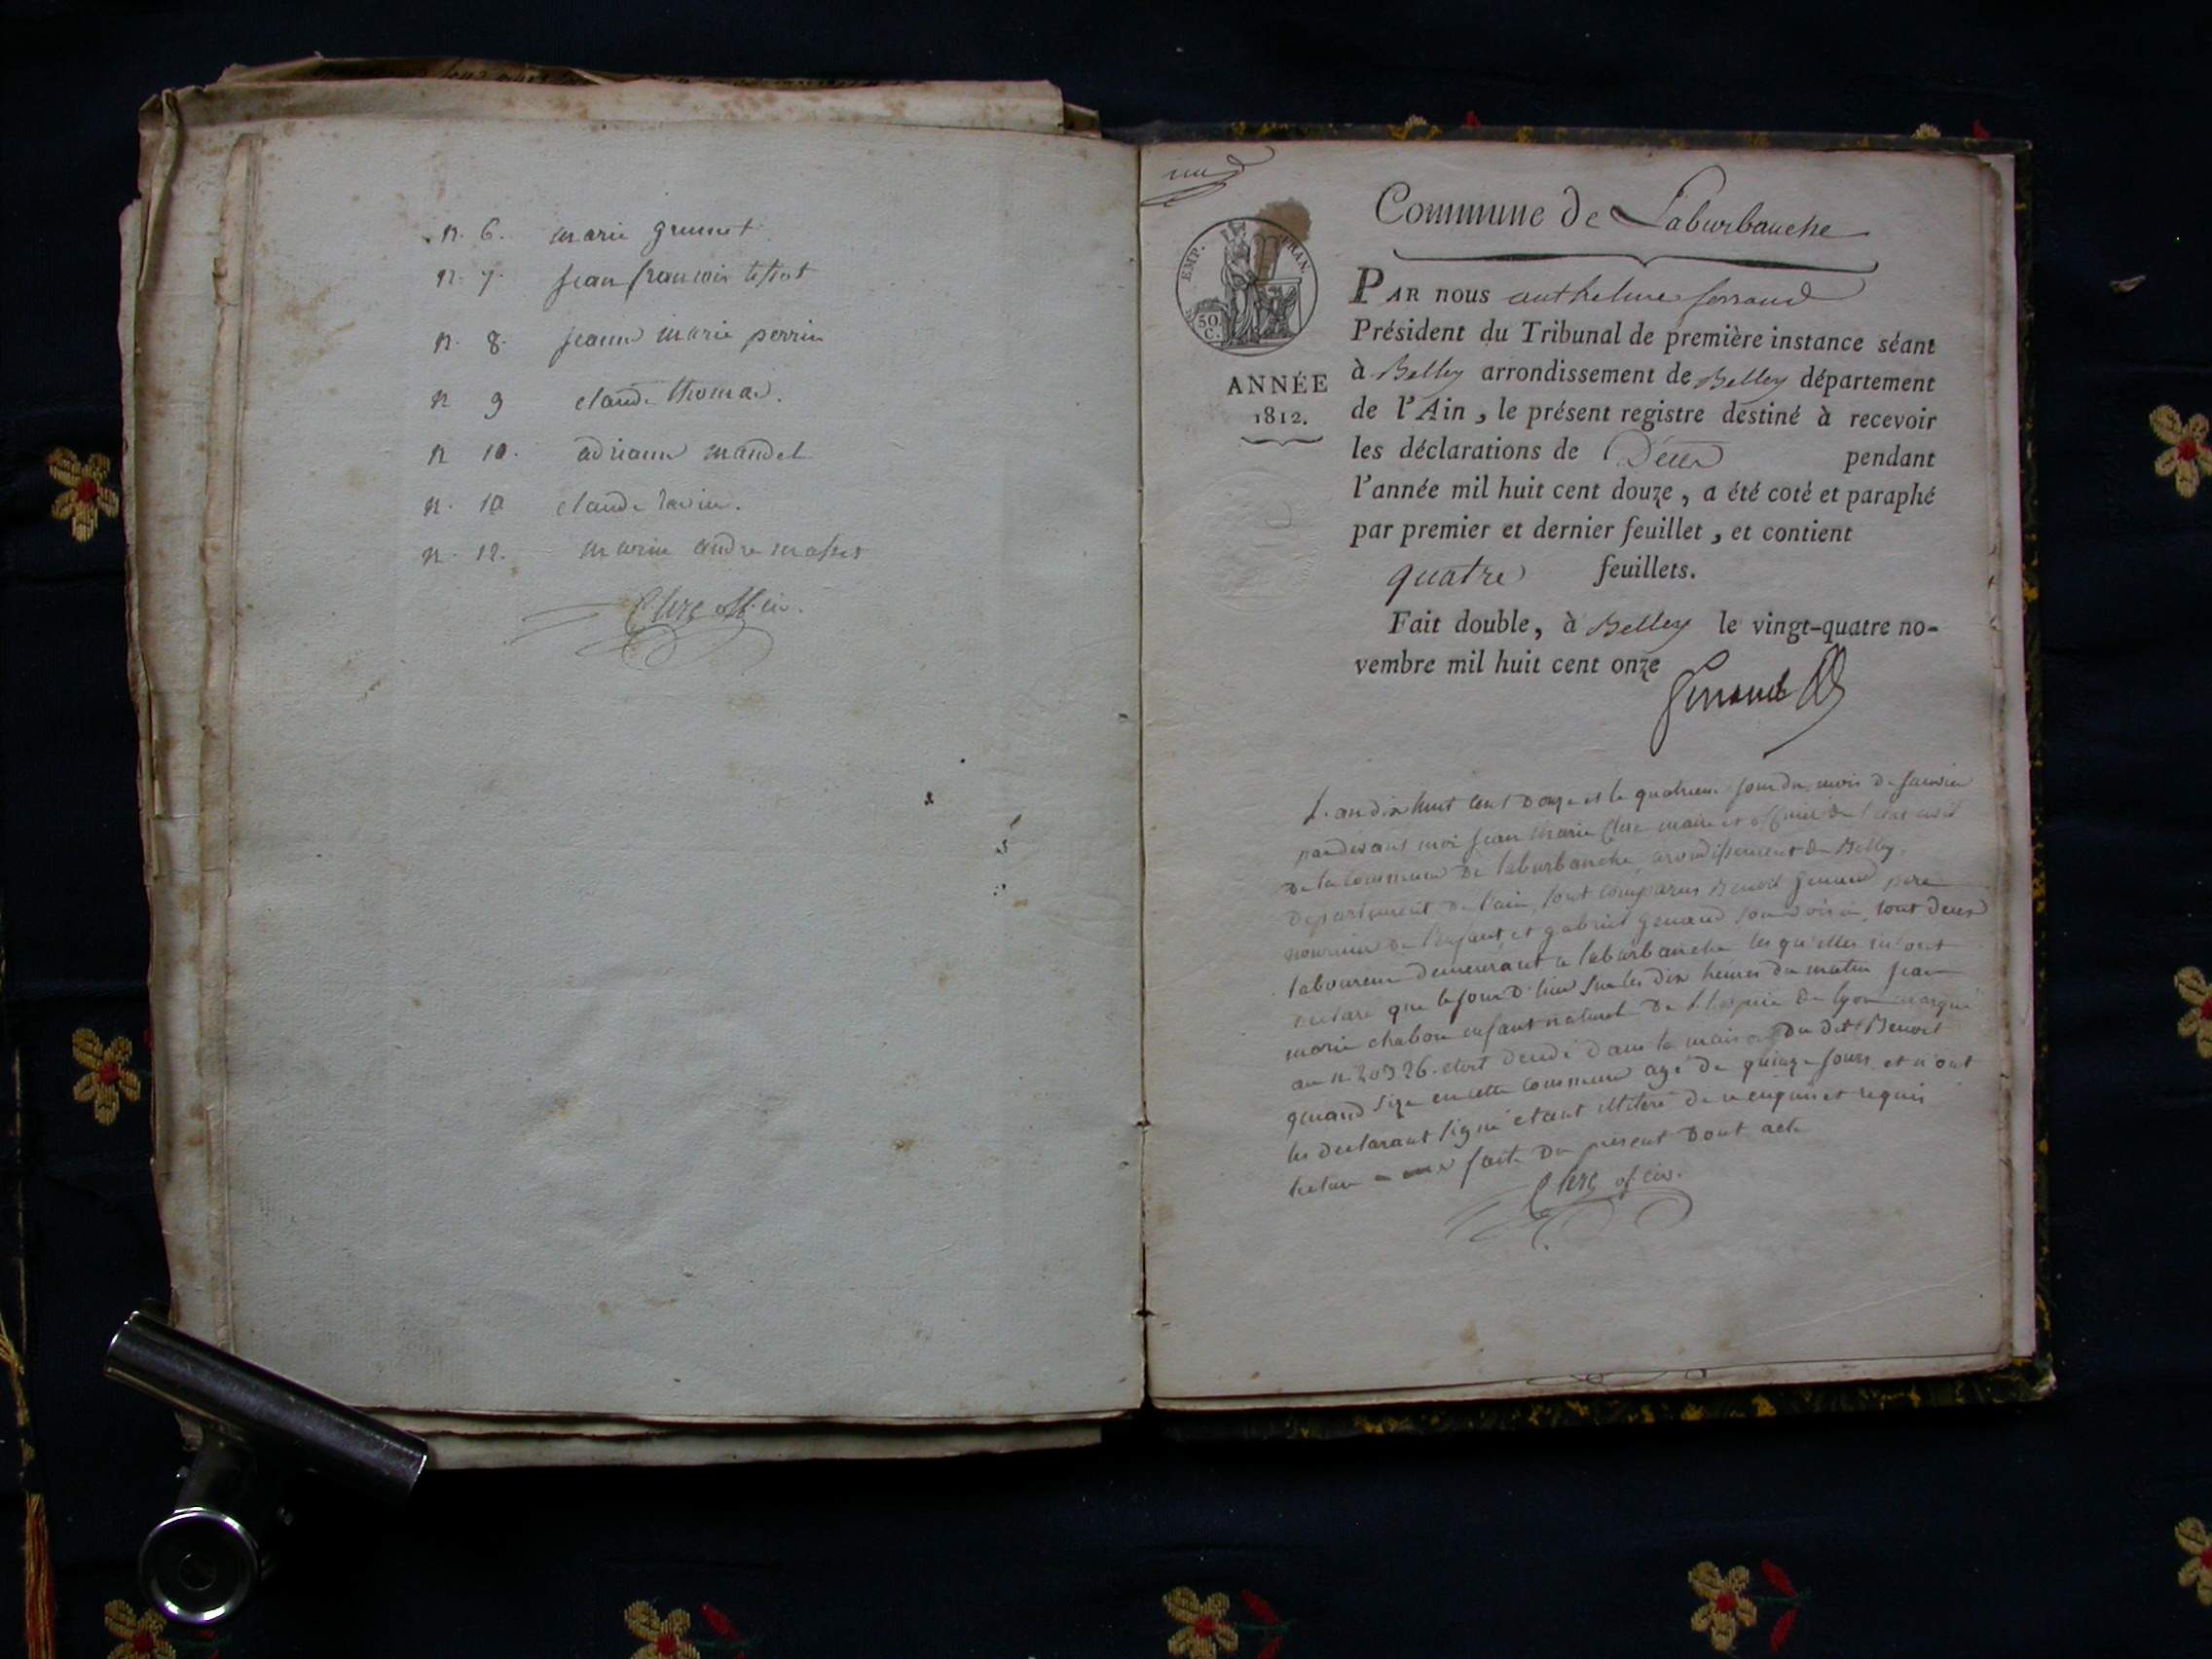 n. 6. marie grumet
n. 7. jean francois tissot
n. 8. jeanne marie perrin
n 9 claude thomas.
n 10. adrianne mandel
n. 10 claude ravin.
n. 12. marie andre masset
Clerc off. civ.
EMP. FRAN.
50 C.
ANNÉE
1812.
Commune de Laburbanche
PAR nous anthelme ferrand
Président du Tribunal de première instance séant
à Belley arrondissement de Belley département
de l'Ain, le présent registre destiné à recevoir
les déclarations de Décès pendant
l'année mil huit cent douze, a été coté et paraphé
par premier et dernier feuillet, et contient
quatre feuillets.
Fait double, à Belley le vingt-quatre no-
vembre mil huit cent onze
ferrand
L'an dix huit cent douze et le quatrieme jour du mois de janvier
pardevant moi jean marie Clerc maire et officier de l'etat civil
de la commune de laburbanche arondissement de Belley.
departement de l'ain, sont comparus Benoit genand pere
nourricier de l'enfant et gabriel genand son voisin, tout deux
laboureur demeurant a laburbanche les qu'elles m'ont
declaré que le jour d'hier sur les dix heures du matin jean
marie chabon enfant naturel de l'hospice de lyon marqué
au n. 20326. etoit decedé dans la maison du dit Benoit
genand size en cette commune agé de quinze jours et n'ont
les declarant signé etant illiteré de ce enquis et requis
lecture faite du present dont acte
Clerc of civ.